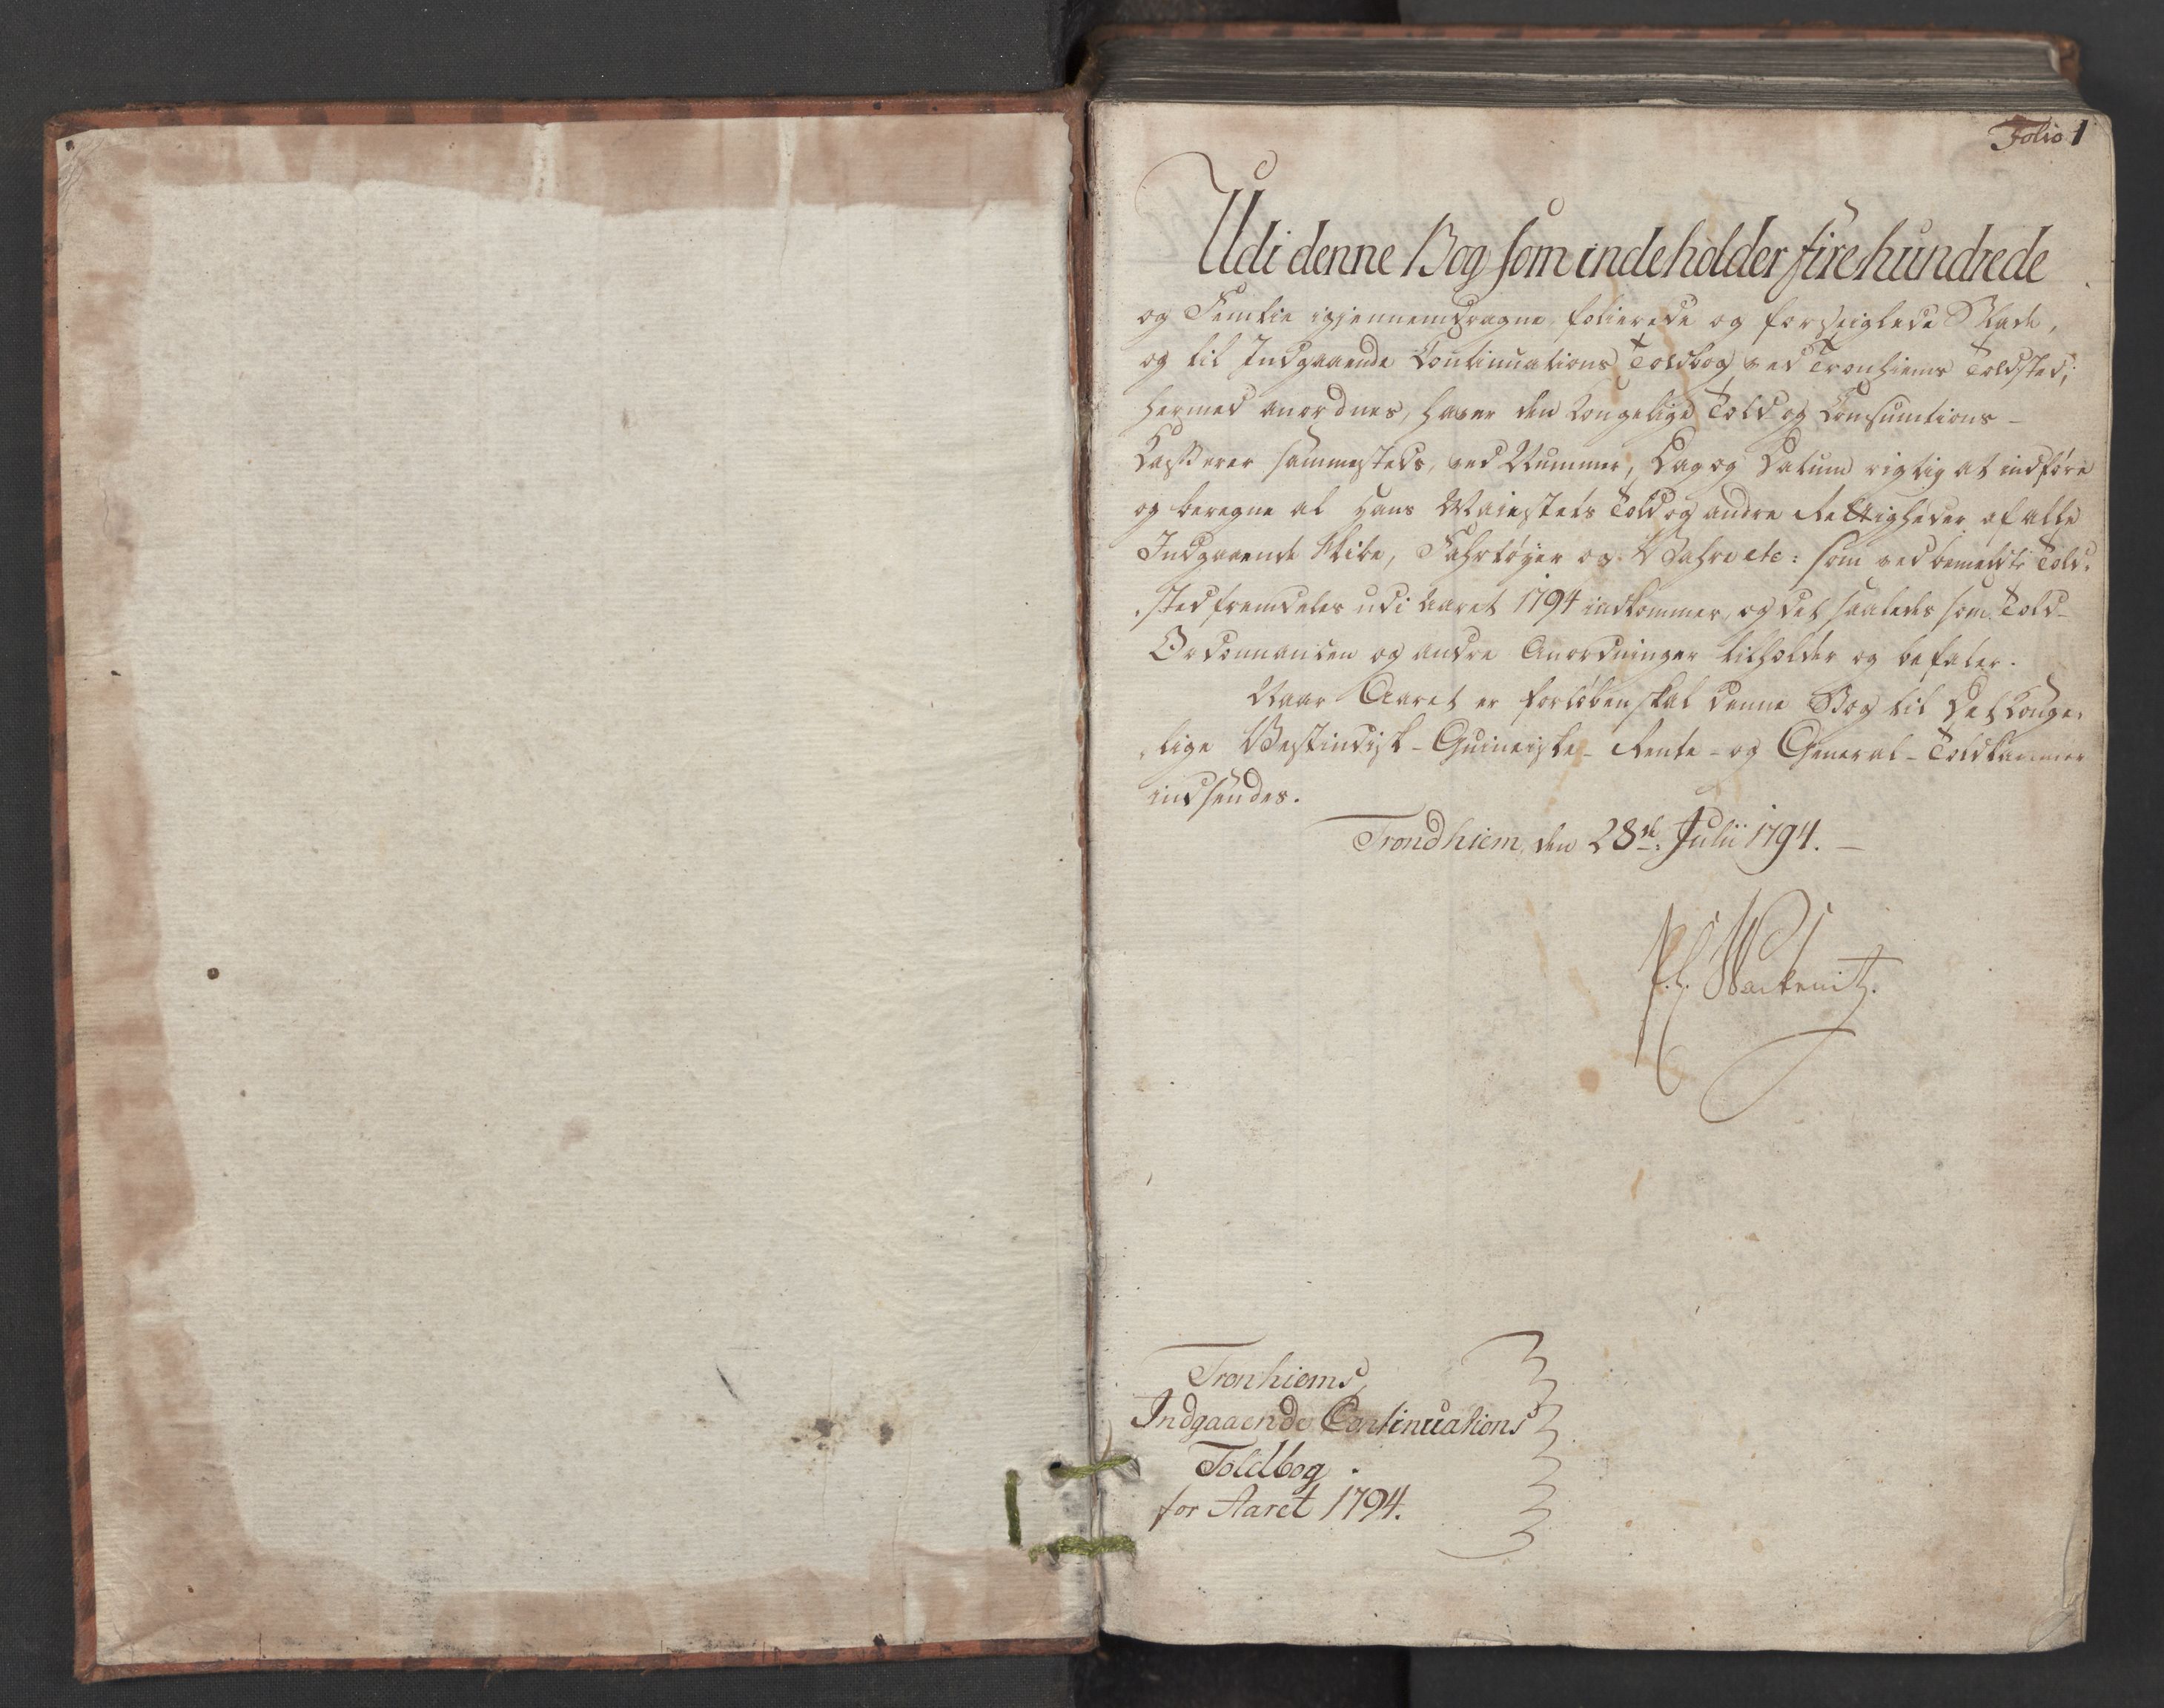 Folio 1
Udi denne Bog som indeholder fire hundrede
og Femtie igjennemdragne, folierede og forseiglede Blade,
og til Indgaaende Continuations Toldbog ved Tronhiems Toldsted,
hermed anordnes, haver den Kongelige Told og Consumtions-
Casserer sammesteds, ved Nummer, Dag og Datum rigtig at indføre
og beregne al Hans Majestets Told og andre Rettigheder af alle
Indgaaende Skibe, Fahrtøyer og Vahre etc: som ved bemeldte Told-
sted fremdeles udi Aaret 1794 indkommer, og det saaledes som Told-
Ordonnancen og andre Anordninger tilholder og befaler.
Naar Aaret er forløben skal denne Bog til Det Konge-
lige Vestindisk-Guineiske- Rente- og General-Toldkammer
indsendes.
Trondhiem, den 28de Julii 1794.
Wackenitz.
Tronhiems
Indgaaende Continuations
Toldbog
for Aaret 1794.